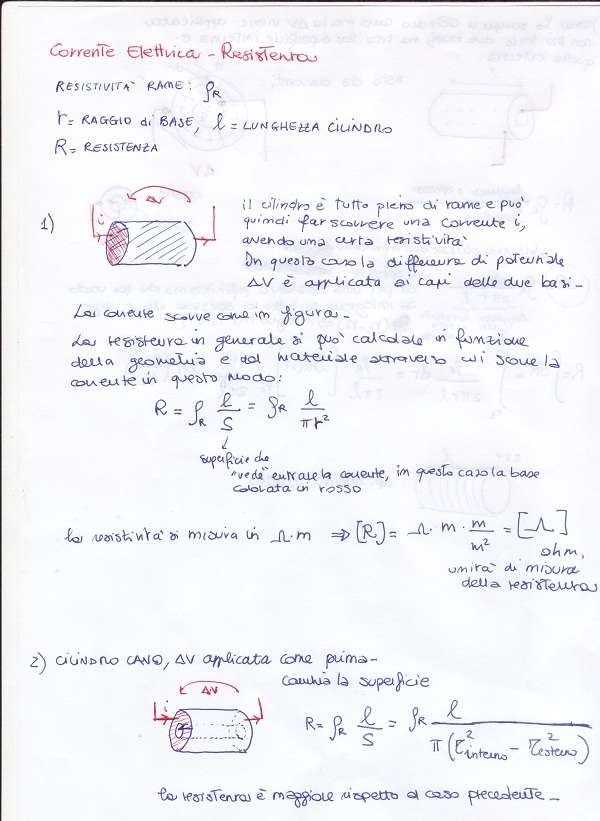 Corrente Elettrica - Resistenza
RESISTIVITA' RAME: ρR
r = RAGGIO di BASE, l = LUNGHEZZA CILINDRO
R = RESISTENZA
1)
ΔV
i
il cilindro è tutto pieno di rame e può
quindi far scorrere una corrente i,
avendo una certa resistività
In questo caso la differenza di potenziale
ΔV è applicata ai capi delle due basi -
La corrente scorre come in figura -
La resistenza in generale si può calcolare in funzione
della geometria e dal materiale attraverso cui scorre la
corrente in questo modo:
R = ρR l/S = ρR l/πr²
superficie che
"vede" entrare la corrente, in questo caso la base
colorata in rosso
la resistività si misura in Ω·m ⇒ [R] = Ω·m·m/m² = [Ω]
ohm,
unità di misura
della resistenza
2) CILINDRO CAVO, ΔV applicata come prima -
cambia la superficie
ΔV
i
R = ρR l/S = ρR l/π(r²interno - r²esterno)
la resistenza è maggiore rispetto al caso precedente -